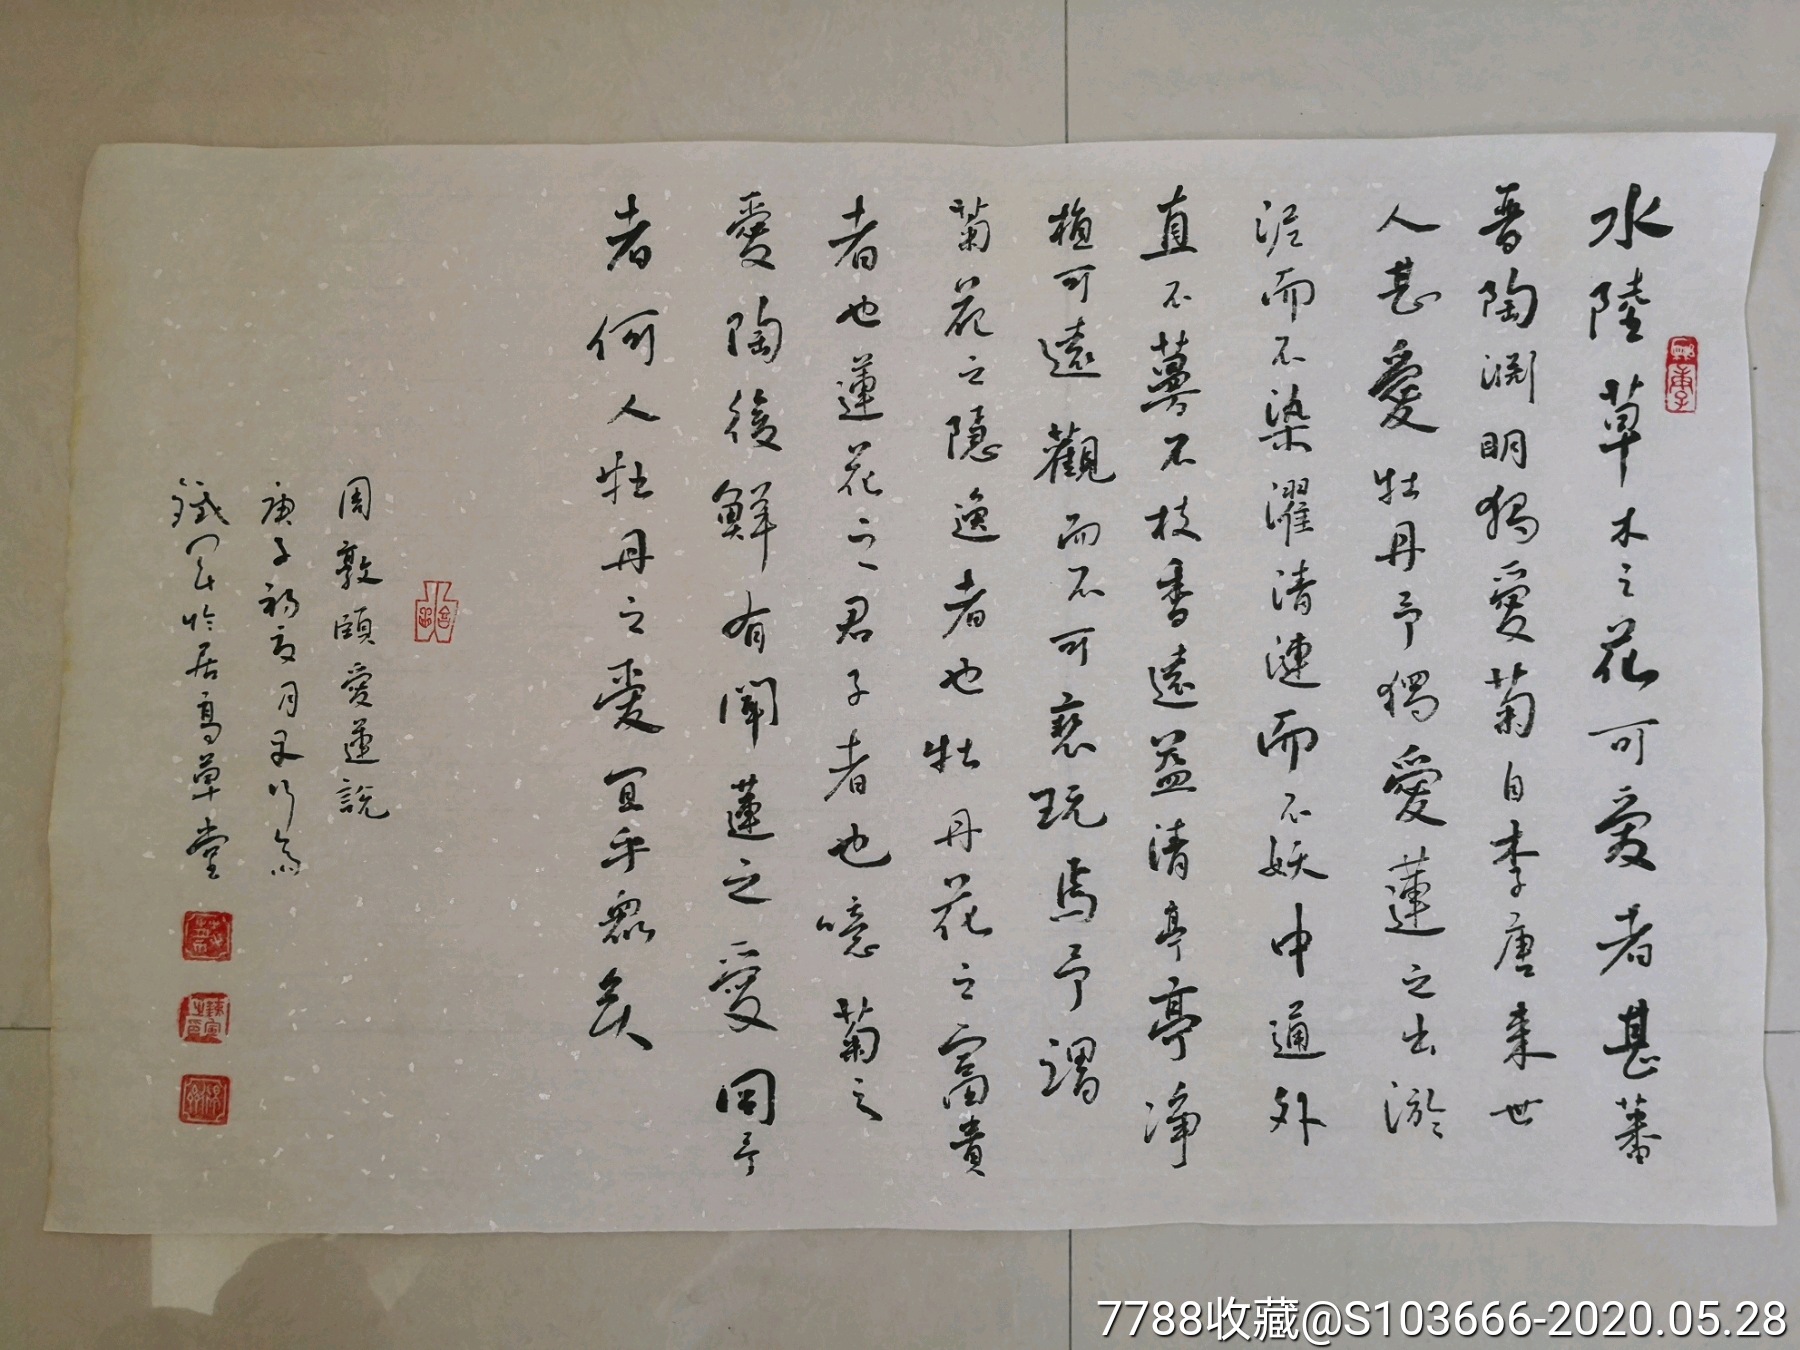 水陸草木之花可愛者甚蕃
晋陶渊明獨愛菊自李唐来世
人甚愛牡丹予獨愛蓮之出淤
泥而不染濯清漣而不妖中通外
直不蔓不枝香遠益清亭亭净
植可遠觀而不可褻玩焉予謂
菊花之隱逸者也牡丹花之富貴
者也蓮花之君子者也噫菊之
愛陶後鮮有聞蓮之愛同予
者何人牡丹之愛宜乎衆矣
周敦頤愛蓮說
庚子初夏月
居高草堂
7788收藏@S103666-2020.05.28